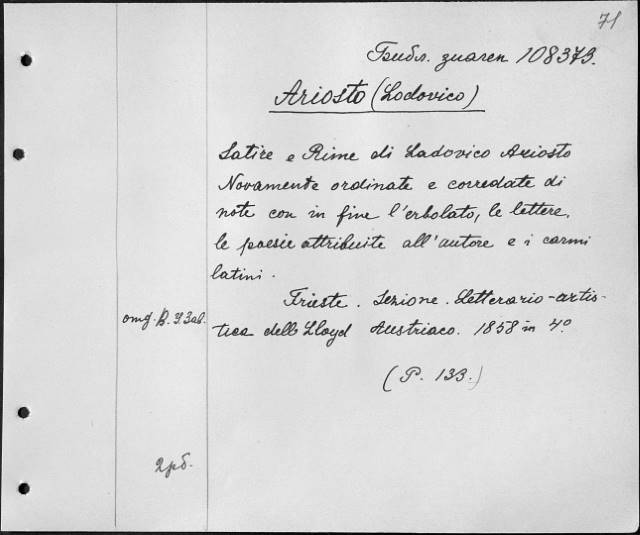 71
Библ. знаген 108373.
Ariosto (Lodovico)
Satire e Rime di Ladovico Ariosto
Novamente ordinate e corredate di
note con in fine l'erbolato, le lettere,
le poesie attribuite all'autore e i carmi
latini.
Trieste. Sezione. Letterario-artis-
отд. В. И. Заб. tica dell Lloyd Austriaco. 1858 in 4º
(P. 133.)
2 рб.